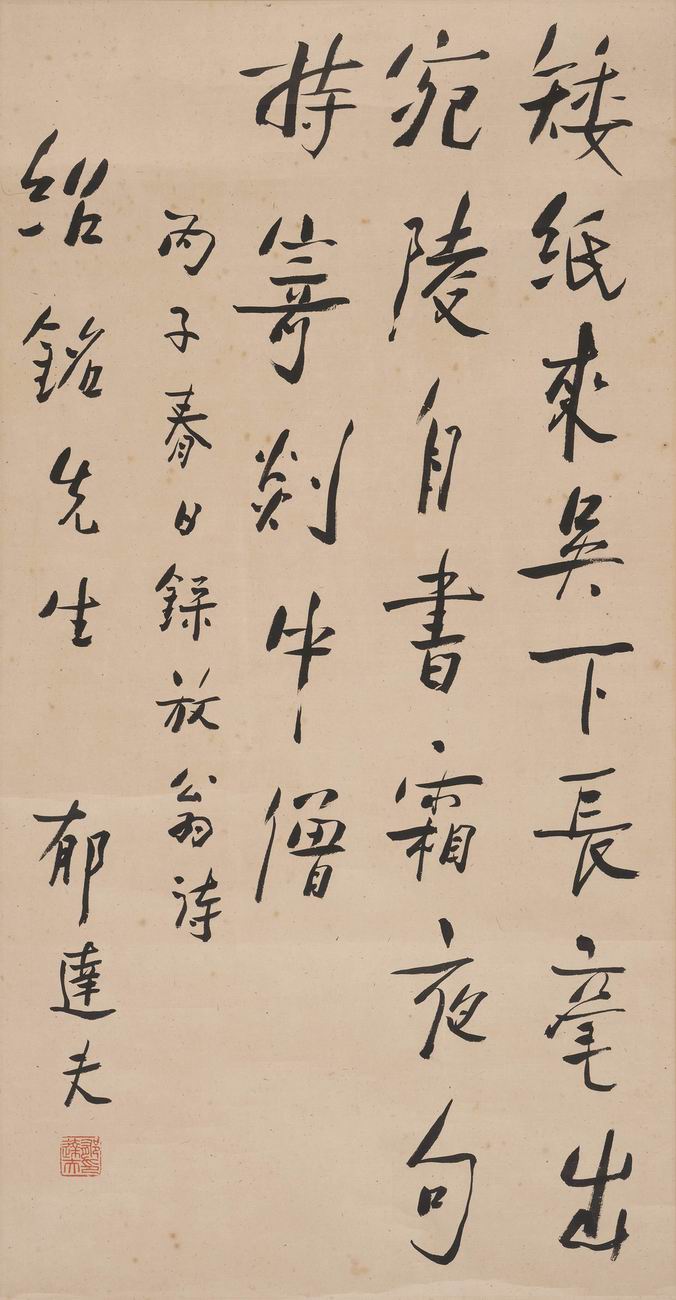 矮紙來吳下長毫出
宛陵自書霜夜句
持寄剡中僧
丙子春日錄放翁詩
紹銘先生 郁達夫